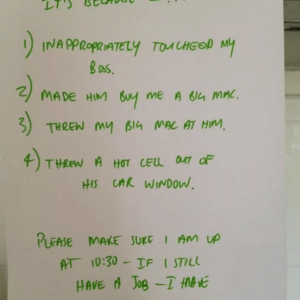 IT'S BECAUSE I...
1) INAPPROPRIATELY TOUCHED MY
BOSS.
2) MADE HIM BUY ME A BIG MAC.
3) THREW MY BIG MAC AT HIM.
4) THREW A HOT CELL OUT OF
HIS CAR WINDOW.
PLEASE MAKE SURE I AM UP
AT 10:30 - IF I STILL
HAVE A JOB - I HAVE